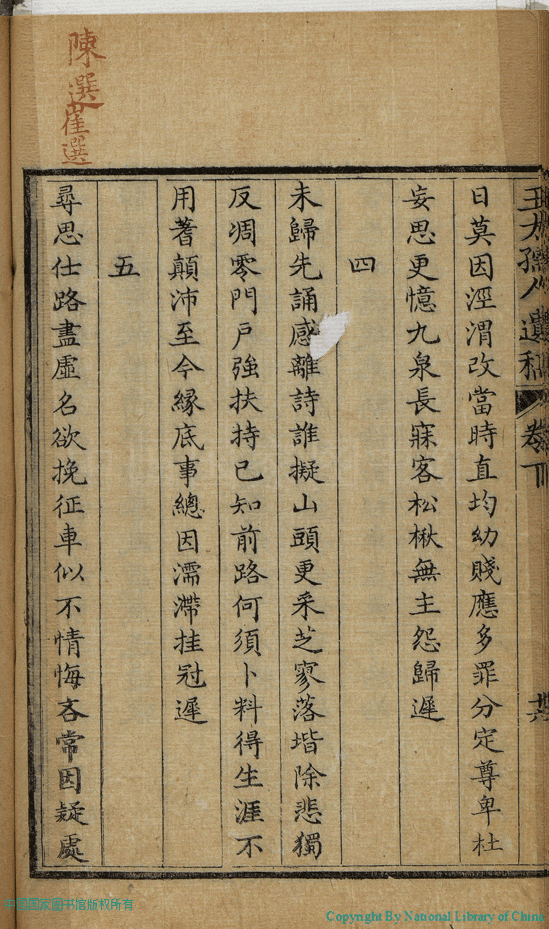 陳選
崔選
王太孺人遺稿 卷下
日莫因涇渭改當時直均幼賤應多罪分定尊卑杜
妄思更憶九泉長寐客松楸無主怨歸遲
四
未歸先誦感離詩誰擬山頭更采芝寥落堦除悲獨
反凋零門戶強扶持已知前路何須卜料得生涯不
用蓍顛沛至今緣底事總因濡滯挂冠遲
五
尋思仕路盡虛名欲挽征車似不情悔吝常因疑處
中国国家图书馆版权所有
Copyright By National Library of China